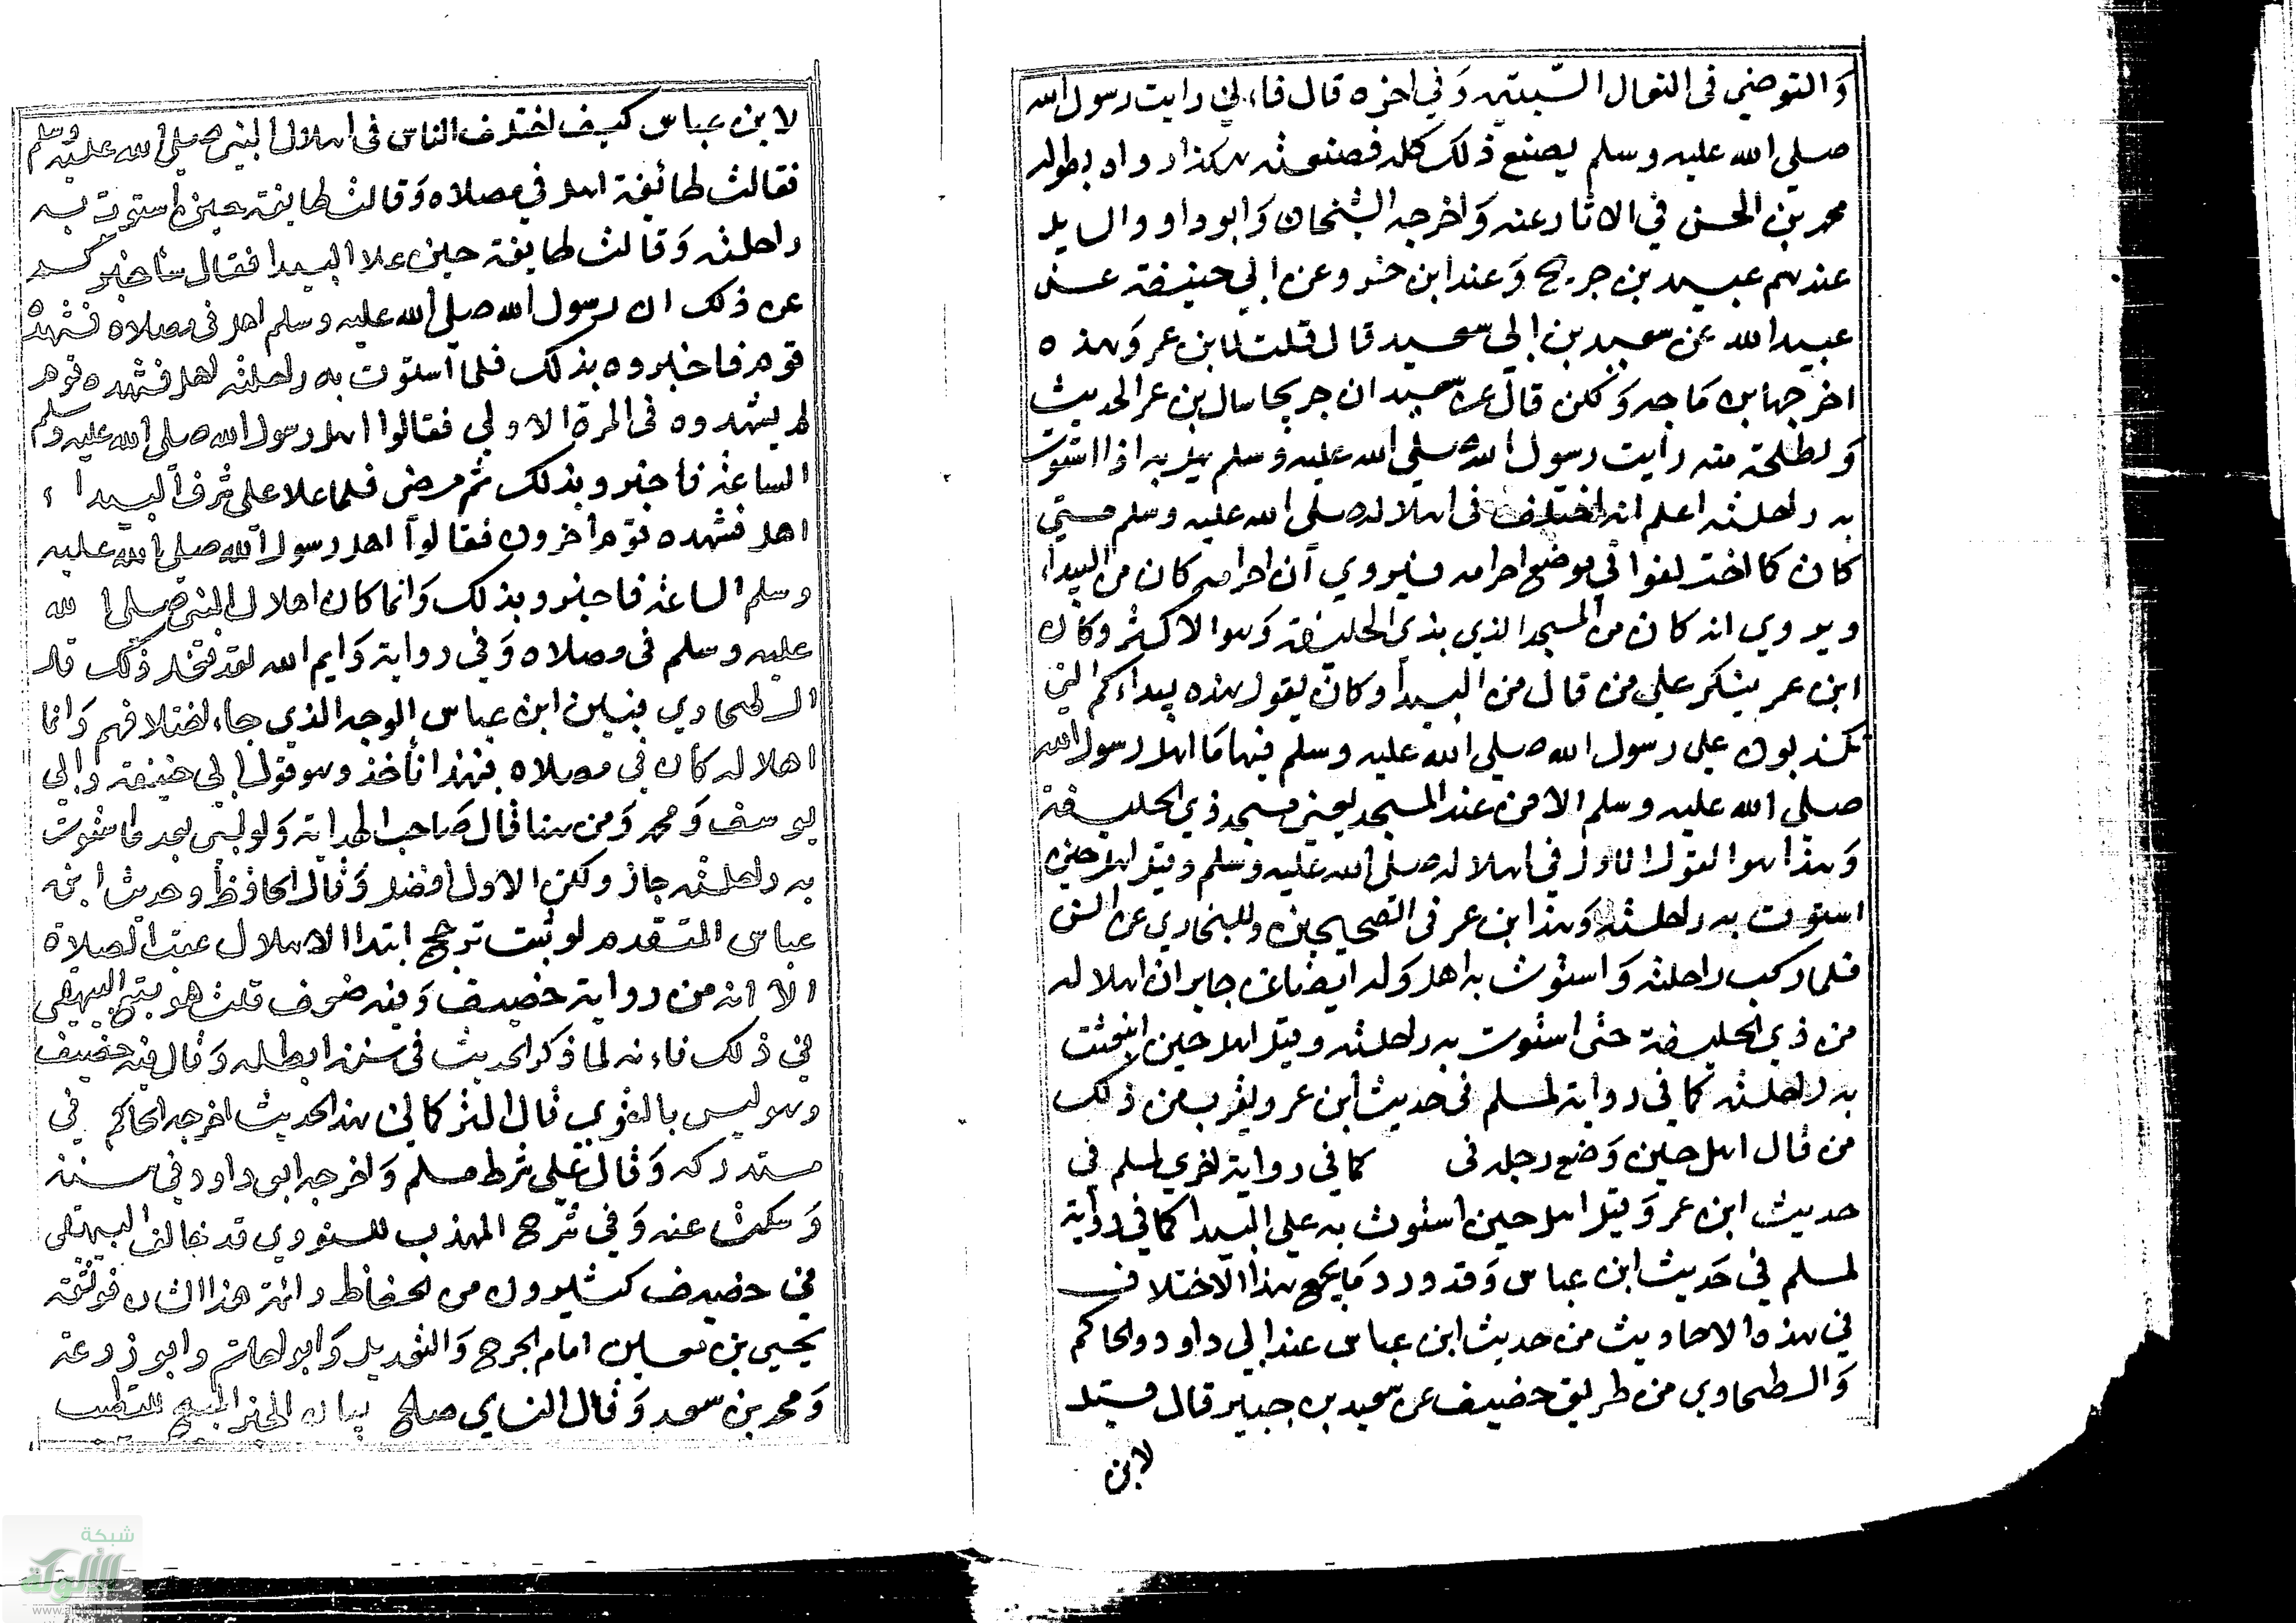 والتوضي في النعال السبتيه وفي اخره قال فاني رايت رسول الله
صلي الله عليه وسلم يصنع ذلك كله فصنعته هكذا رواه بطوله
محمد بن الحسن في الاثار عنه واخرجه الشيخان وابو داود والسايل
عندهم عبيد بن جريج وعند ابن خسرو عن ابي حنيفة عن
عبيد الله عن سعيد بن ابي سعيد قال قلت لابن عمر وهذه
اخرجها ابن ماجه ولكن قال عن سعيد ان جريجا سال بن عمر الحديث
ولطلحة منه رايت رسول الله صلي الله عليه وسلم يلبي اذا استوت
به راحلته اعلم انه اختلف في اهلاله صلي الله عليه وسلم متي
كان كما اختلفوا في موضع احرامه فيروي ان احرامه كان من البيداء
ويروي انه كان من المسجد الذي بذي الحليفة وهو الاكثر وكان
ابن عمر ينكر علي من قال من البيدا وكان يقول هذه بيداءكم التي
تكذبون علي رسول الله صلي الله عليه وسلم فيها ما اهل رسول الله
صلي الله عليه وسلم الا من عند المسجد يعني مسجد ذي الحليفة
وهذا هو القول الاول في اهلاله صلي الله عليه وسلم وقيل اهل حين
استوت به راحلته وهذا ابن عمر في الصحيحين وللبخاري عن انس
فلما ركب راحلته واستوت به اهل وله ايضا عن جابر ان اهلاله
من ذي الحليفة حتي استوت به راحلته وقيل اهل حين انبعثت
به راحلته كما في رواية لمسلم في حديث ابن عمر ويقرب من ذلك
من قال اهل حين وضع رجله في كما في رواية اخري لمسلم في
حديث ابن عمر وقيل اهل حين استوت به علي البيدا كما في رواية
لمسلم في حديث ابن عباس وقد ورد ما يجمع هذا الاختلاف
في هذه الاحاديث من حديث ابن عباس عند ابي داود والحاكم
والطحاوي من طريق خصيف عن سعيد بن جبير قال قيل
لابن
لابن عباس كيف اختلف الناس في اهلال النبي صلي الله عليه وسلم
فقالت طائفة اهل في مصلاه وقالت طايفة حين استوت به
راحلته وقالت طايفة حين علا البيدا فقال ساخبركم
عن ذلك ان رسول الله صلي الله عليه وسلم اهل في مصلاه فشهده
قوم فاخبروه بذلك فلما استوت به راحلته اهل فشهده قوم
لم يشهدوه في المرة الاولي فقالوا اهل رسول الله صلي الله عليه وسلم
الساعة فاخبروا بذلك ثم مضي فلما علا علي شرف البيداء
اهل فشهده قوم اخرون فقالوا اهل رسول الله صلي الله عليه
وسلم الساعة فاخبروا بذلك وانما كان اهلال النبي صلي الله
عليه وسلم في مصلاه وفي رواية وايم الله لقد فعل ذلك قال
الطحاوي فبين ابن عباس الوجه الذي جاء اختلافهم وانما
اهلاله كان في مصلاه فبهذا ناخذ وهو قول ابي حنيفة وابي
يوسف ومحمد ومن هنا قال صاحب الهداية ولو لبي بعد ما استوت
به راحلته جاز ولكن الاول افضل وقال الحافظ وحديث ابن
عباس المتقدم لو ثبت ترجح ابتدا الاهلال عقب الصلاة
الا انه من رواية خصيف وفيه ضعف قلت هو يتبع البيهقي
في ذلك فانه لما ذكر الحديث في سننه ابطله وقال فيه خصيف
وهو ليس بالقوي قال التركماني هذا الحديث اخرجه الحاكم في
مستدركه وقال علي شرط مسلم واخرجه ابو داود في سننه
وسكت عنه وفي شرح المهذب للنووي قد خالف البيهقي
في خصيف كثيرون من الحفاظ وائمة هذا الشان فوثقه
يحيي بن معين امام الجرح والتعديل وابو حاتم وابو زرعة
ومحمد بن سعد وقال النساي صالح بيان الخبر المبيح للتطيب
شبكة
الألوكة